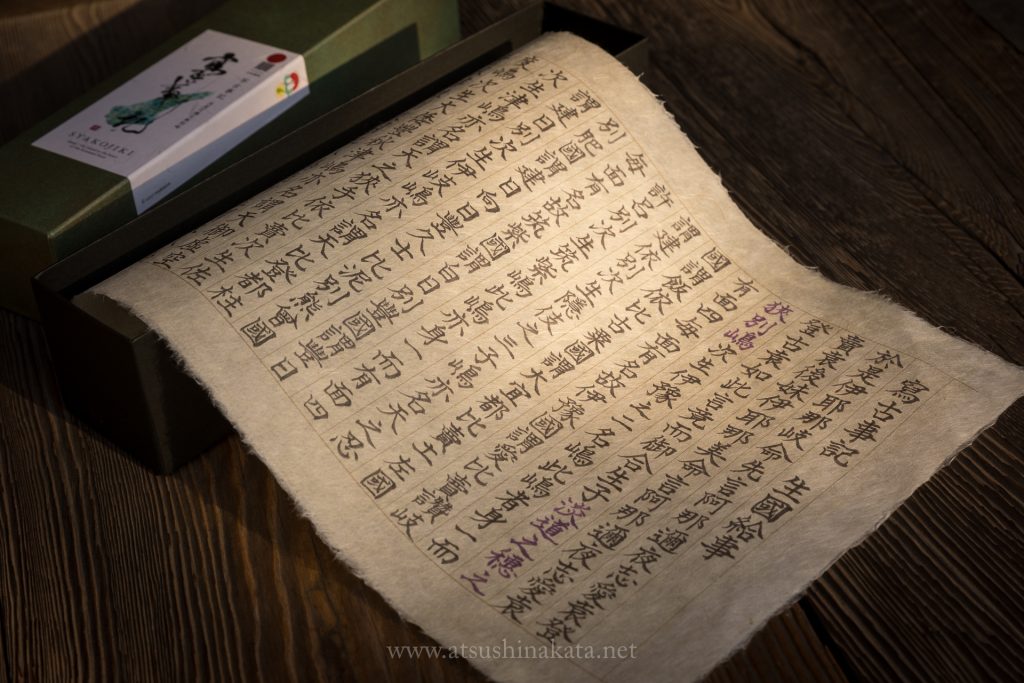 寫古事記 生國給事
於是伊耶那岐命先言阿那邇夜志愛袁登
賣袁後妹伊耶那美命言阿那邇夜志愛袁
登古袁如此言竟而御合生子淡道之穗之
狹別嶋次生伊豫之二名嶋此嶋者身一而
有面四每面有名故伊豫國謂愛比賣讚岐
國謂飯依比古粟國謂大宜都比賣土左國
謂建依別次生隱伎之三子嶋亦名天之忍
許呂別次生筑紫嶋此嶋亦身一而有面四
每面有名故筑紫國謂白日別豐國謂豐日
別肥國謂建日向日豐久士比泥別熊曾國
謂建日別次生伊岐嶋亦名謂天比登都柱
次生津嶋亦名謂天之狹手依比賣次生佐
SYAKOJIKI
www.atsushinakata.net